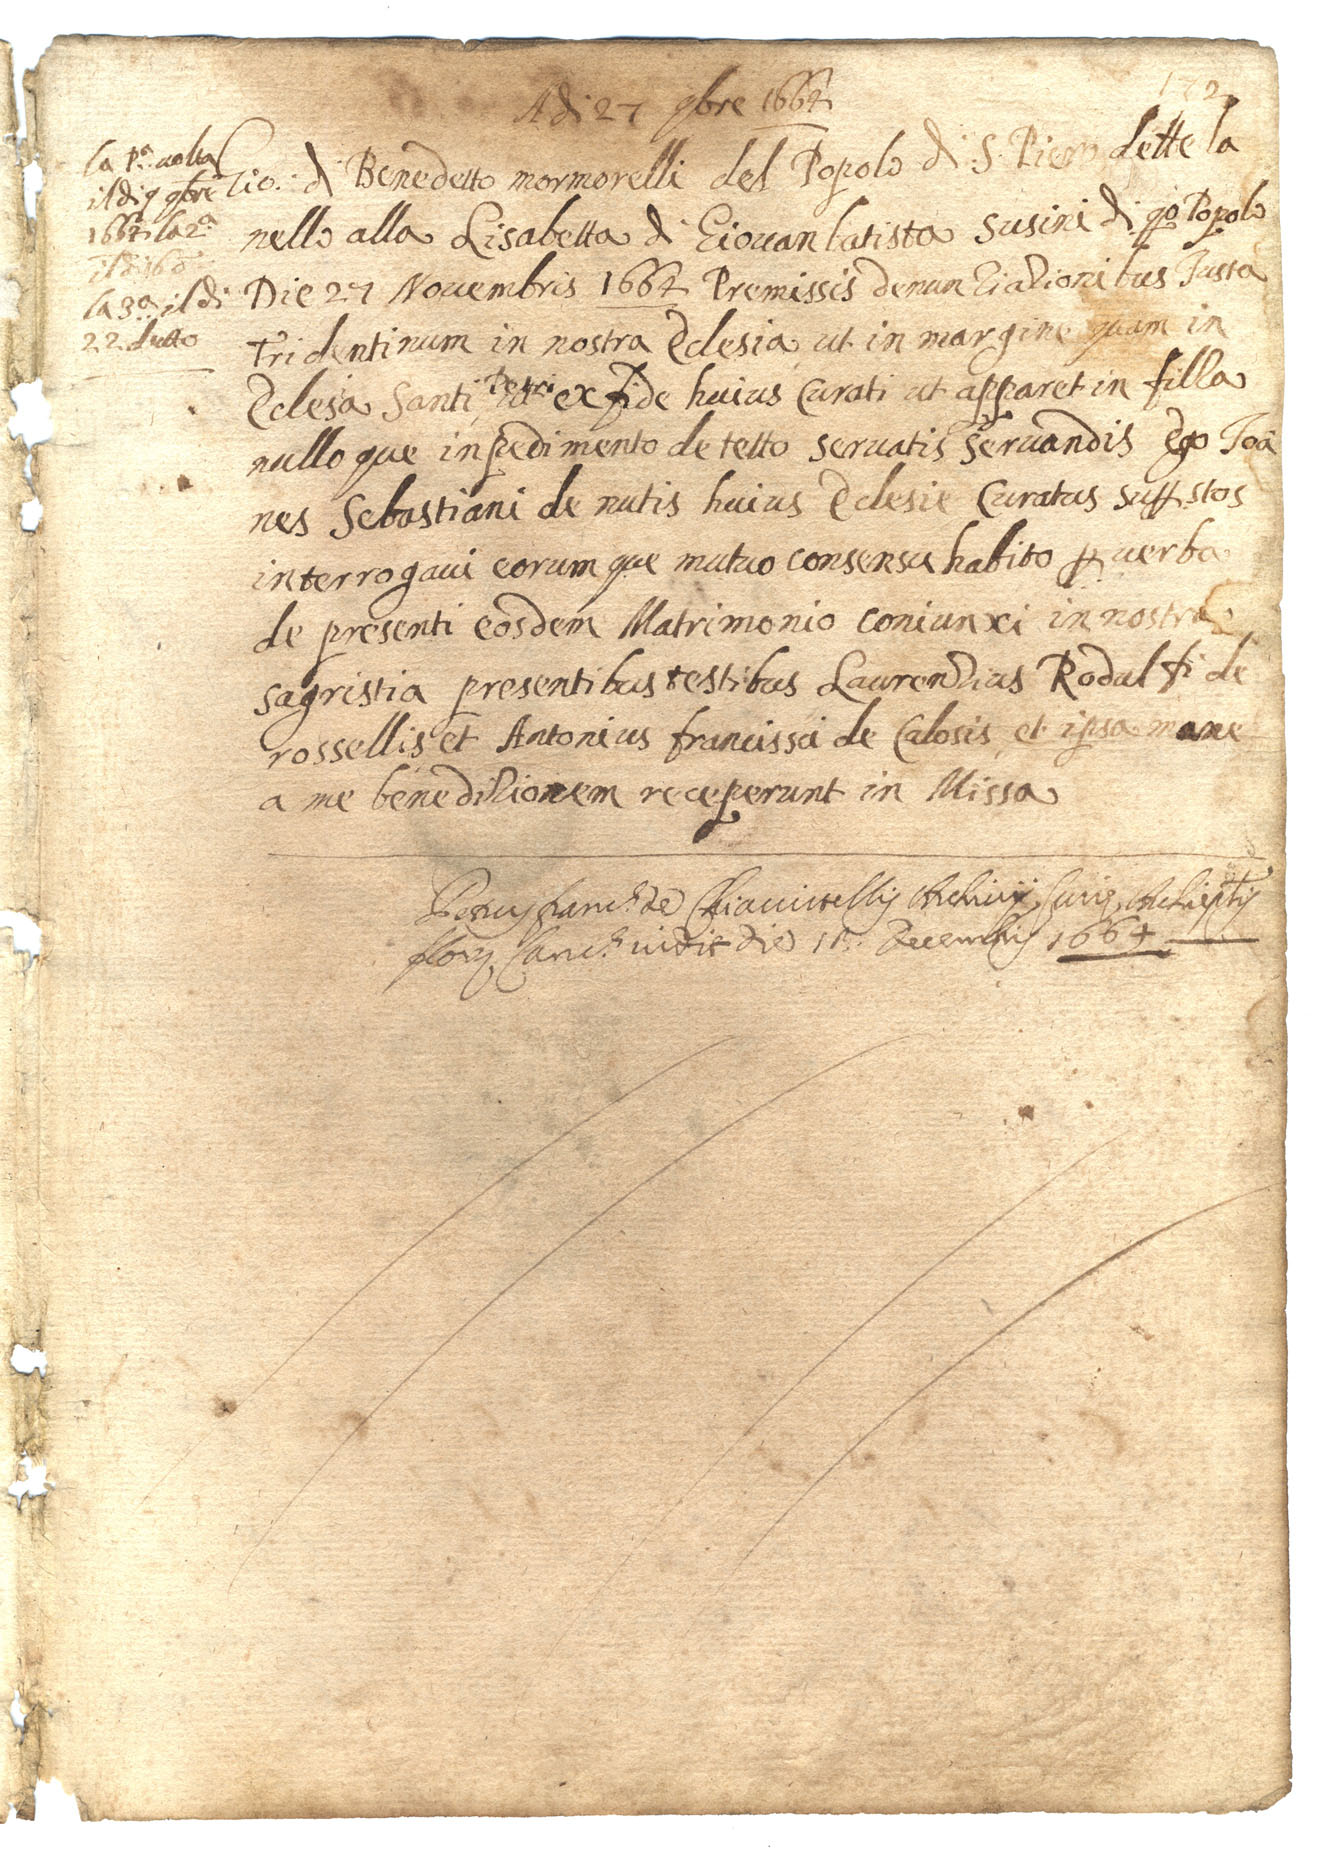 172
A di 27 9bre 1664
la pª uolta
il di 9 9bre
1664 la 2ª
il di 16 dº
la 3ª il di
22 detto
Gio. di Benedetto mormorelli del Popolo di S. Piero dette la
nello alla Lisabetta di Giouanbatista Susini di qo Popolo
Die 27 Nouembris 1664 Premissis denuntiationibus Iusta
tridentinum in nostra Eclesia ut in margine quam in
Eclesia Santi Petri ex fide huius Curati ut apparet in filla
nulloque inpedimento detetto seruatis seruandis Ego Joã
nes Sebastiani de nutis huius Eclesie Curatus suffstos
interrogaui eorumque mutuo consensu habito p uerba
de presenti eosdem Matrimonio coniunxi in nostra
sagristia presentibus testibus Laurentius Rodulfi de
rossellis et Antonius francissci de Calosis et ipsa mane
a me beneditionem receperunt in Missa
Petrus franc.s de Chiauistellis Archiuij Curie Archieptis
flory Canc.s uidit die 11 Decembris 1664